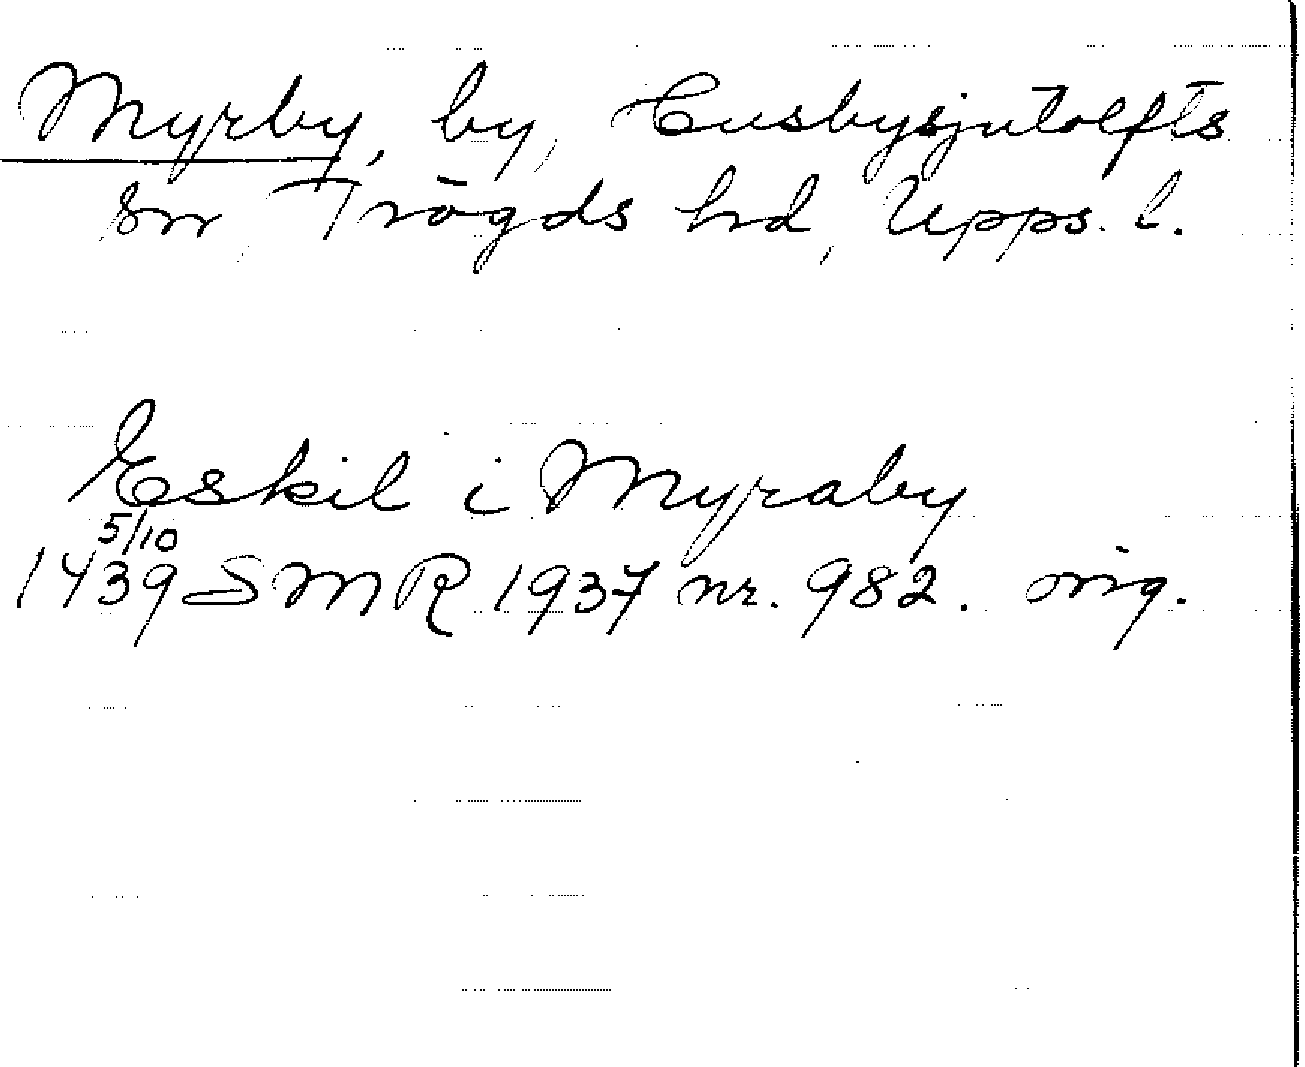 Myrby, by, Husbysjutolfts
sn, Trögds hd, Upps. l.
Eskil i Myraby
5/10
1439 SMR 1937 nr. 982. orig.